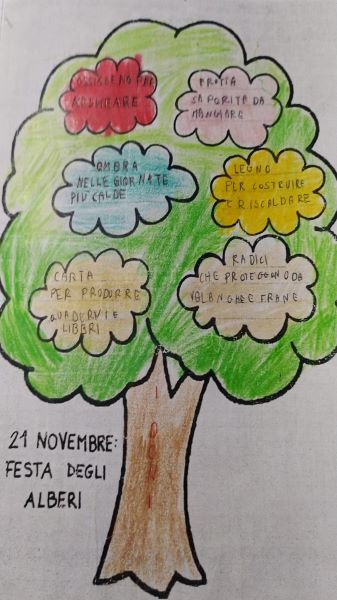 OSSIGENO PER
RESPIRARE
FRUTTA
SAPORITA DA
MANGIARE
OMBRA
NELLE GIORNATE
PIÙ CALDE
LEGNO
PER COSTRUIRE
E RISCALDARE
CARTA
PER PRODURRE
QUADERNI E
LIBERI
RADICI
CHE PROTEGGONO DA
VALANGHE E FRANE
I DONI
21 NOVEMBRE:
FESTA DEGLI
ALBERI